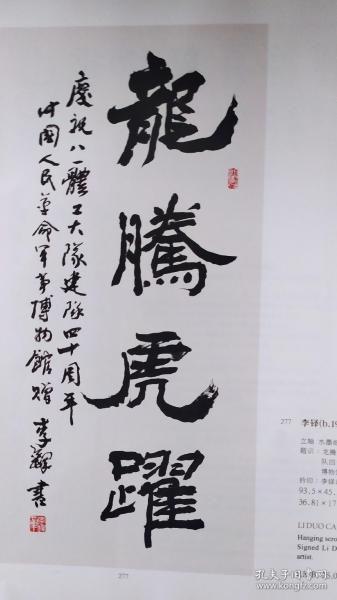 龍騰虎躍
慶祝八一體工大隊建隊四十周年
中國人民革命軍事博物館贈 李鐸書
277
277 李铎(b.19
立轴 水墨
题识：龙腾
队四
博物
钤印：李铎
93.5×45.
36.81×17
LI DUO CA
Hanging scro
Signed Li D
artist.
孔夫子旧书网